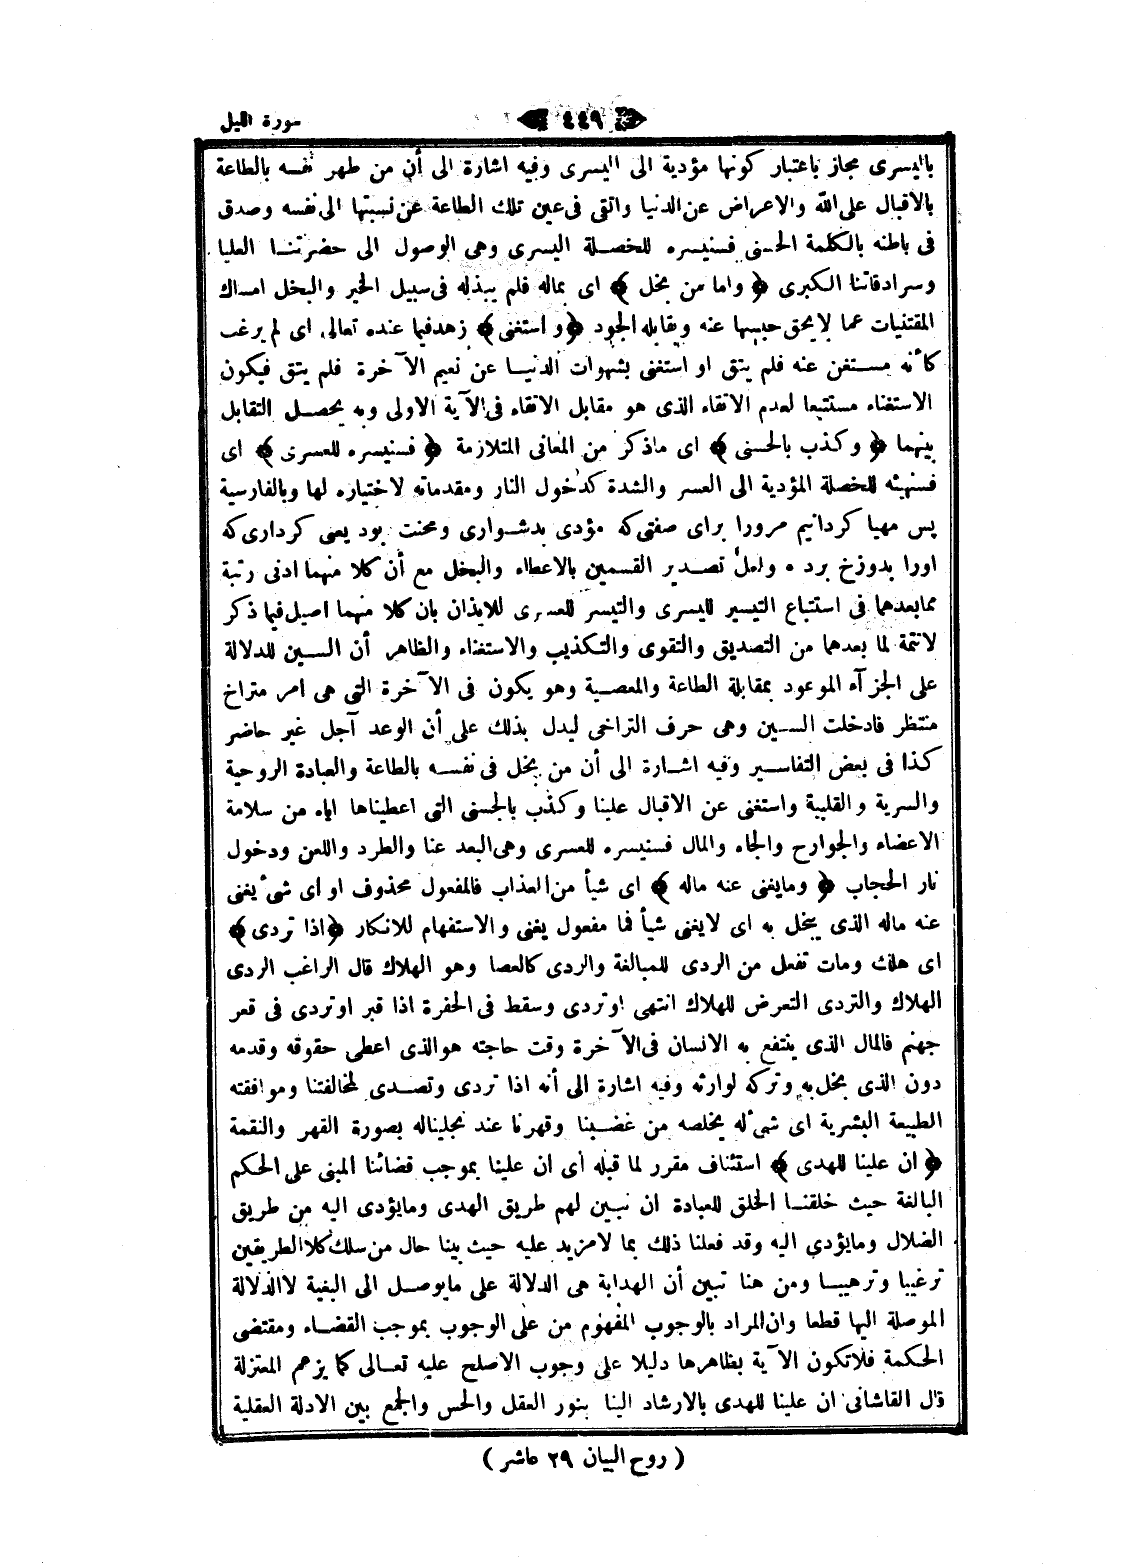 سورة الليل
٤٤٩
باليسرى مجاز باعتبار كونها مؤدية الى اليسرى وفيه اشارة الى أن من طهر نفسه بالطاعة
بالاقبال على الله والاعراض عن الدنيا واتقى فى عين تلك الطاعة عن نسبتها الى نفسه وصدق
فى باطنه بالكلمة الحسنى فسنيسره للخصلة اليسرى وهى الوصول الى حضرتنا العليا
وسرادقاتنا الكبرى ﴿ واما من بخل ﴾ اى بماله فلم يبذله فى سبيل الخير والبخل امساك
المقتنيات عما لا يحق حبسها عنه ويقابله الجود ﴿ واستغنى ﴾ زهد فيما عنده تعالى اى لم يرغب
كأنه مستغن عنه فلم يتق او استغنى بشهوات الدنيا عن نعيم الآخرة فلم يتق فيكون
الاستغناء مستتبعا لعدم الاتقاء الذى هو مقابل الاتقاء فى الآية الاولى وبه يحصل التقابل
بينهما ﴿ وكذب بالحسنى ﴾ اى ماذكر من المعانى المتلازمة ﴿ فسنيسره للعسرى ﴾ اى
فسنهيئه للخصلة المؤدية الى العسر والشدة كدخول النار ومقدماته لاختياره لها وبالفارسية
پس مهيا كردانيم مرورا براى صفتى كه مؤدى بدشوارى ومحنت بود يعنى كردارى كه
اورا بدوزخ برد ٠ ولعل تصدير القسمين بالاعطاء والبخل مع أن كلا منهما ادنى رتبة
مما بعدهما فى استتباع التيسير لليسرى والتيسر للعسرى للايذان بان كلا منهما اصيل فيما ذكر
لاتتمة لما بعدهما من التصديق والتقوى والتكذيب والاستغناء والظاهر أن السين للدلالة
على الجزآء الموعود بمقابلة الطاعة والمعصية وهو يكون فى الآخرة التى هى امر متراخ
منتظر فادخلت السين وهى حرف التراخى ليدل بذلك على أن الوعد آجل غير حاضر
كذا فى بعض التفاسير وفيه اشارة الى أن من بخل فى نفسه بالطاعة والعبادة الروحية
والسرية والقلبية واستغنى عن الاقبال علينا وكذب بالحسنى التى اعطيناها اياه من سلامة
الاعضاء والجوارح والجاه والمال فسنيسره للعسرى وهى البعد عنا والطرد واللعن ودخول
نار الحجاب ﴿ وما يغنى عنه ماله ﴾ اى شيأ من العذاب فالمفعول محذوف او اى شىء يغنى
عنه ماله الذى يبخل به اى لايغنى شيأ فما مفعول يغنى والاستفهام للانكار ﴿ اذا تردى ﴾
اى هلك ومات تفعل من الردى للمبالغة والردى كالعصا وهو الهلاك قال الراغب الردى
الهلاك والتردى التعرض للهلاك انتهى او تردى وسقط فى الحفرة اذا قبر او تردى فى قعر
جهنم فالمال الذى ينتفع به الانسان فى الآخرة وقت حاجته هو الذى اعطى حقوقه وقدمه
دون الذى بخل به وتركه لوارثه وفيه اشارة الى أنه اذا تردى وتصدى لمخالفتنا وموافقته
الطبيعة البشرية اى شىء له يخلصه من غضبنا وقهرنا عند تجليناله بصورة القهر والنقمة
﴿ ان علينا للهدى ﴾ استئناف مقرر لما قبله أى ان علينا بموجب قضائنا المبنى على الحكم
البالغة حيث خلقنا الخلق للعبادة ان نبين لهم طريق الهدى ومايؤدى اليه من طريق
الضلال ومايؤدي اليه وقد فعلنا ذلك بما لامزيد عليه حيث بينا حال من سلك كلا الطريقين
ترغيبا وترهيبا ومن هنا تبين أن الهداية هى الدلالة على مايوصل الى البغية لا الدلالة
الموصلة اليها قطعا وان المراد بالوجوب المفهوم من على الوجوب بموجب القضاء ومقتضى
الحكمة فلاتكون الآية بظاهرها دليلا على وجوب الاصلح عليه تعالى كما يزعم المعتزلة
قال القاشانى ان علينا للهدى بالارشاد الينا بنور العقل والحس والجمع بين الادلة العقلية
( روح البيان ٢٩ عاشر )